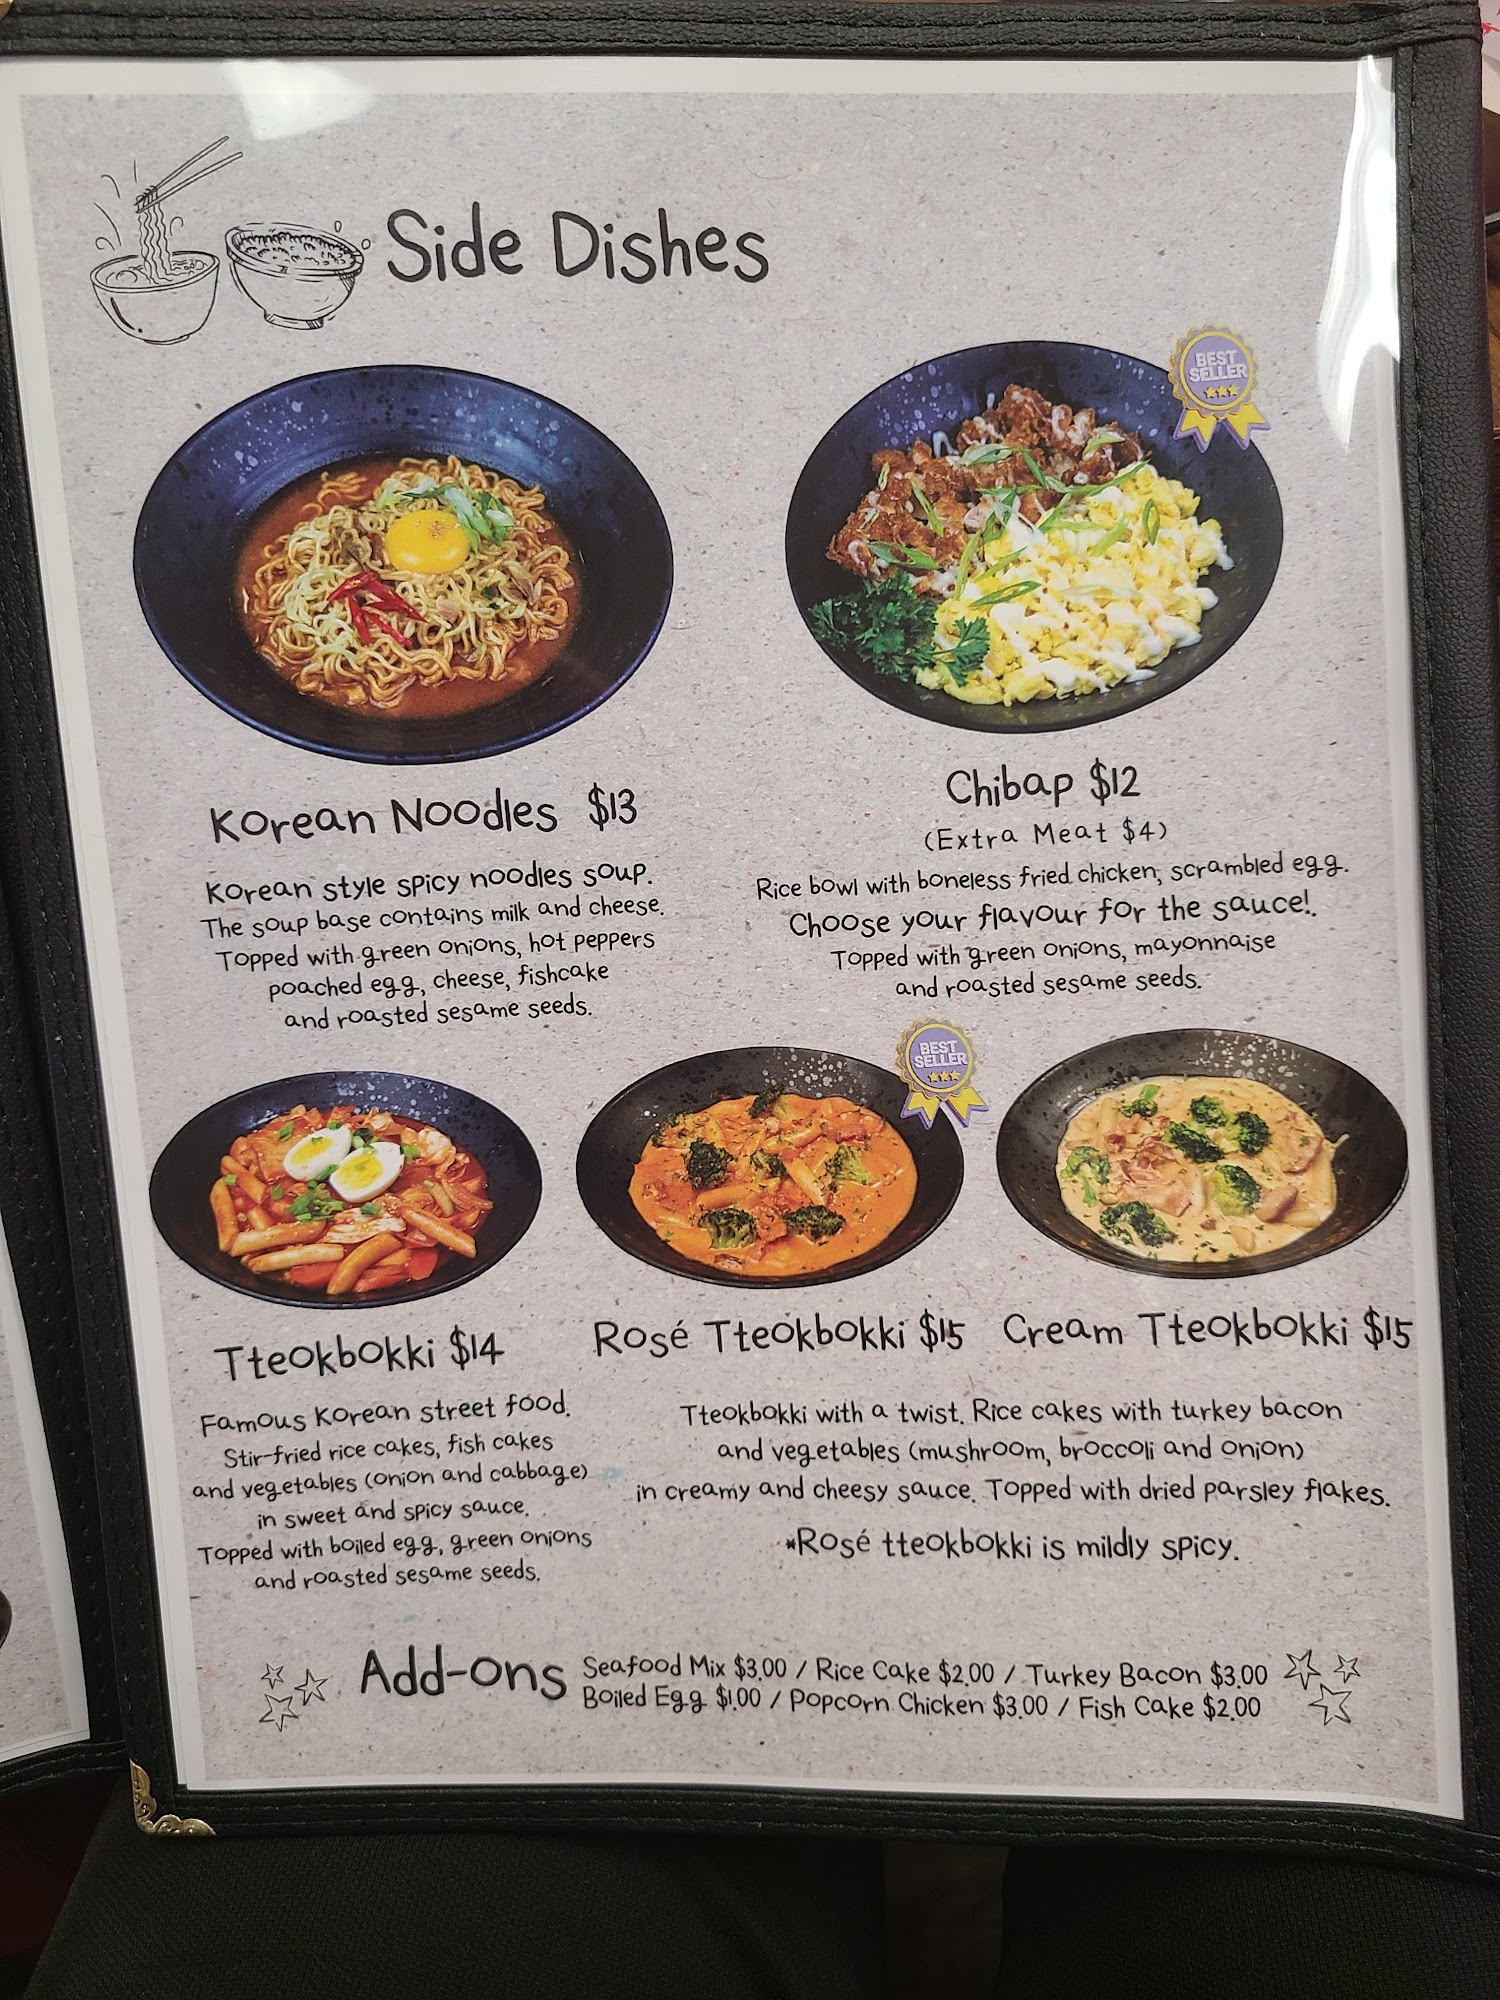 Side Dishes
BEST
SELLER
Korean Noodles $13
Korean style spicy noodles soup.
The soup base contains milk and cheese.
Topped with green onions, hot peppers
poached egg, cheese, fishcake
and roasted sesame seeds.
Chibap $12
(Extra Meat $4)
Rice bowl with boneless fried chicken, scrambled egg.
Choose your flavour for the sauce!.
Topped with green onions, mayonnaise
and roasted sesame seeds.
BEST
SELLER
Tteokbokki $14
Famous Korean street food.
Stir-fried rice cakes, fish cakes
and vegetables (onion and cabbage)
in sweet and spicy sauce.
Topped with boiled egg, green onions
and roasted sesame seeds.
Rosé Tteokbokki $15
Cream Tteokbokki $15
Tteokbokki with a twist. Rice cakes with turkey bacon
and vegetables (mushroom, broccoli and onion)
in creamy and cheesy sauce. Topped with dried parsley flakes.
*Rosé tteokbokki is mildly spicy.
Add-ons
Seafood Mix $3.00 / Rice Cake $2.00 / Turkey Bacon $3.00
Boiled Egg $1.00 / Popcorn Chicken $3.00 / Fish Cake $2.00